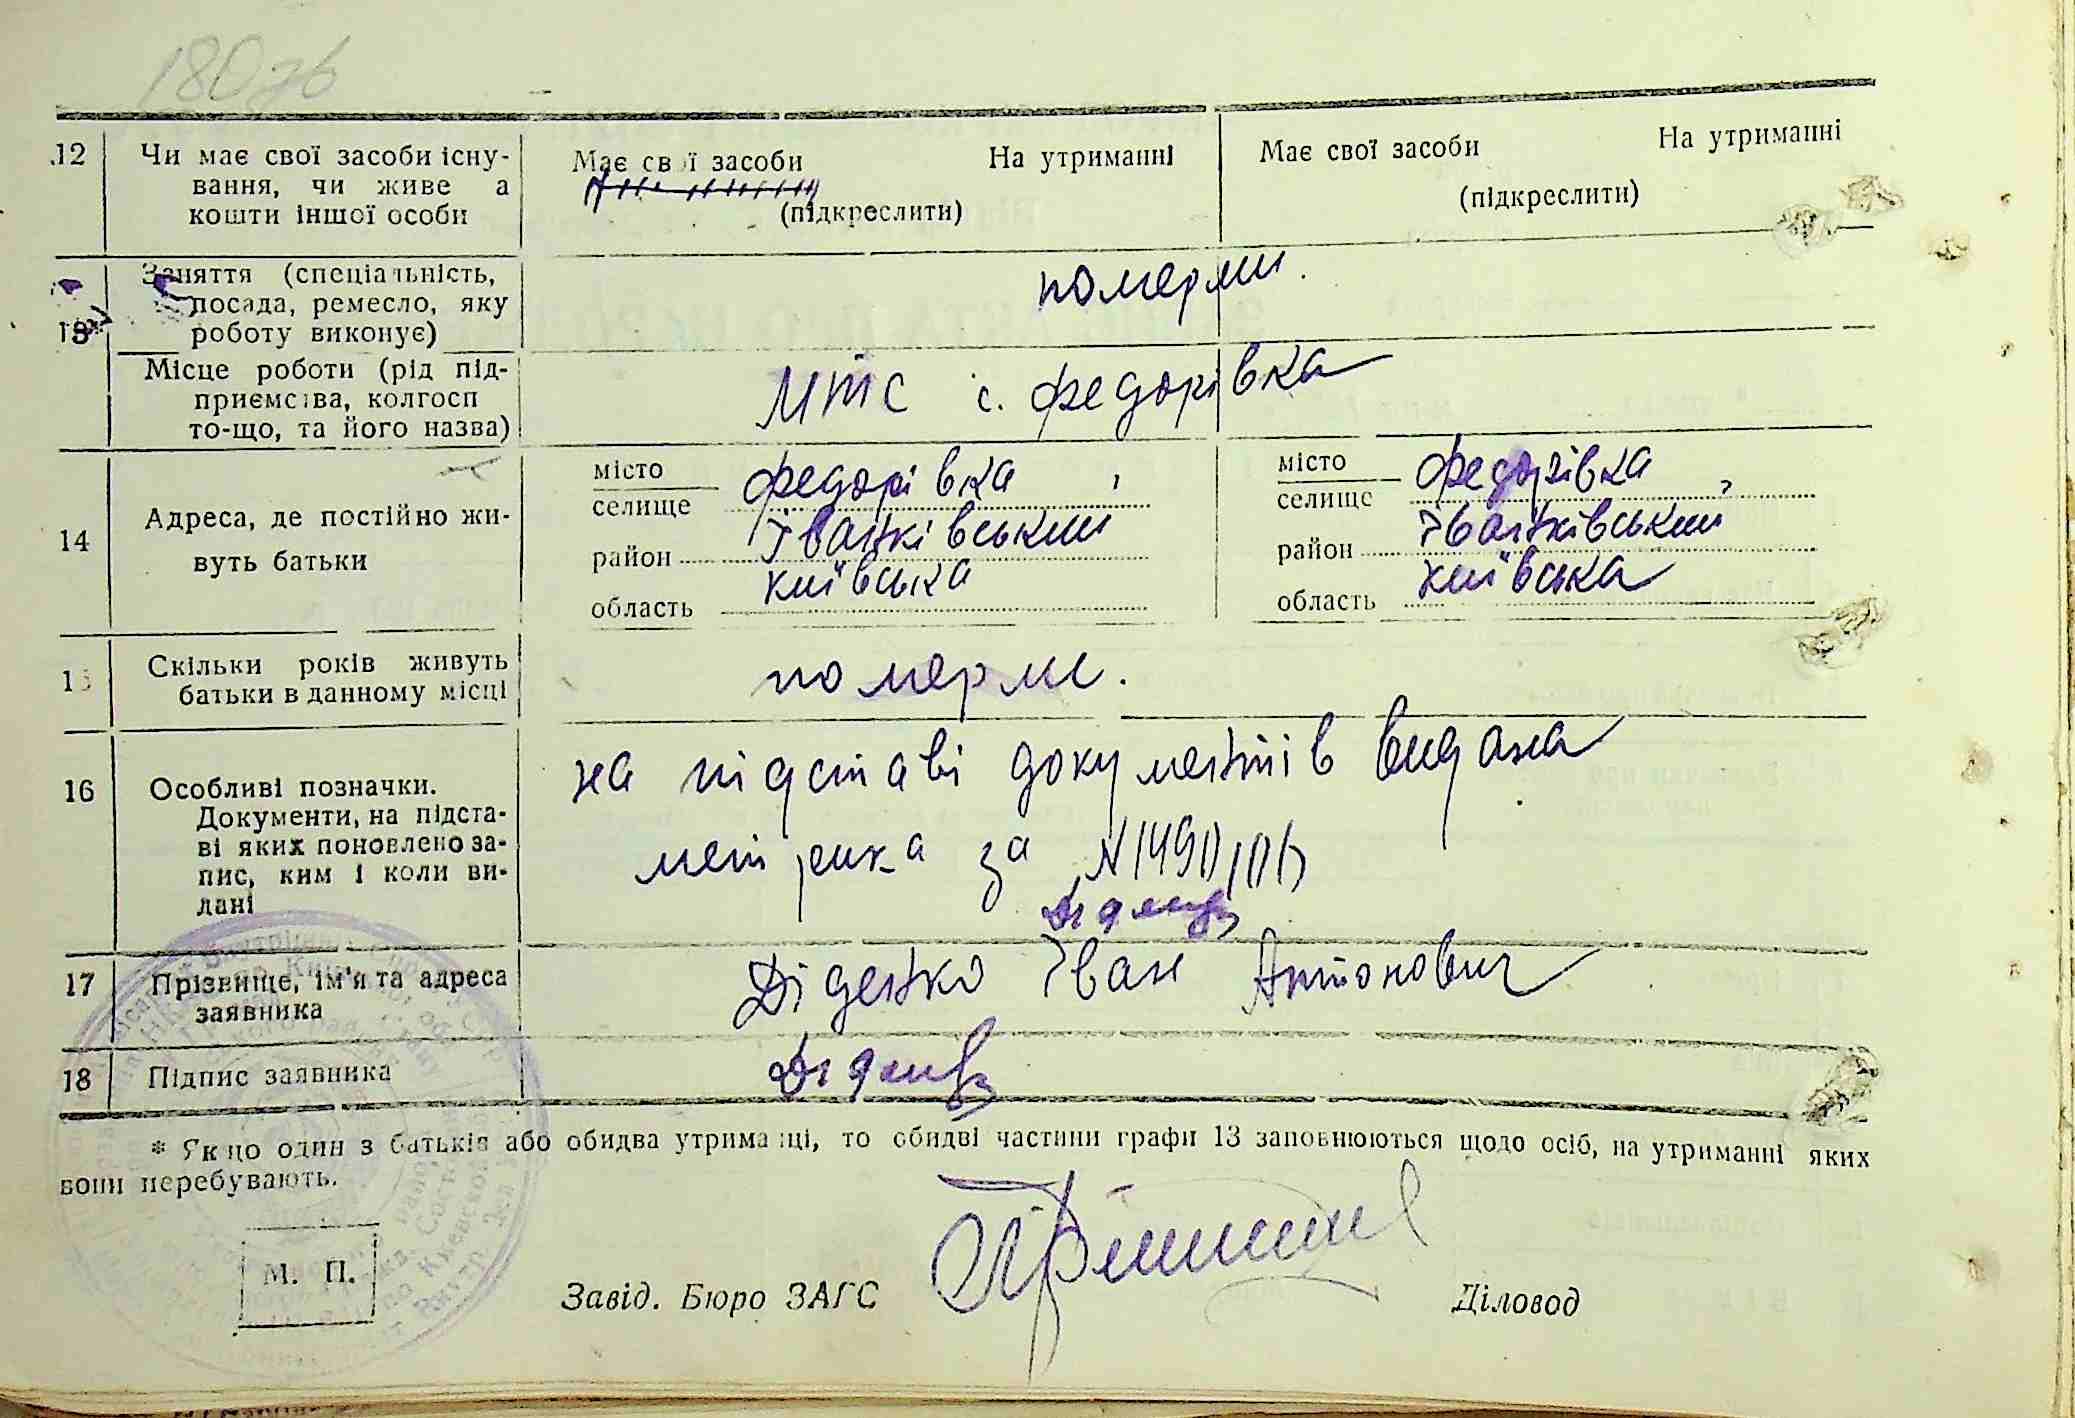 180зв
12 Чи має свої засоби існу- Має свої засоби На утриманні Має свої засоби На утриманні
вання, чи живе а (підкреслити) (підкреслити)
кошти іншої особи
Заняття (спеціальність, померли.
посада, ремесло, яку
13 роботу виконує)
Місце роботи (рід під- МТС с. Федорівка
приємства, колгосп
то-що, та його назва)
14 Адреса, де постійно жи-
вуть батьки
місто Федорівка, місто Федорівка,
селище селище
район Іванківський район Іванківський
область київська область київська
15 Скільки років живуть померли.
батьки в данному місці
16 Особливі позначки. на підставі документів видана
Документи, на підста- метрика за N
ві яких поновлено за-
пис, ким і коли ви-
дані
17 Прізвище, ім'я та адреса Діденко Іван Антонович
заявника
18 Підпис заявника
* Якщо один з батьків або обидва утриманці, то обидві частини графи 13 заповнюються щодо осіб, на утриманні яких
вони перебувають.
М. П.
Завід. Бюро ЗАГС Діловод